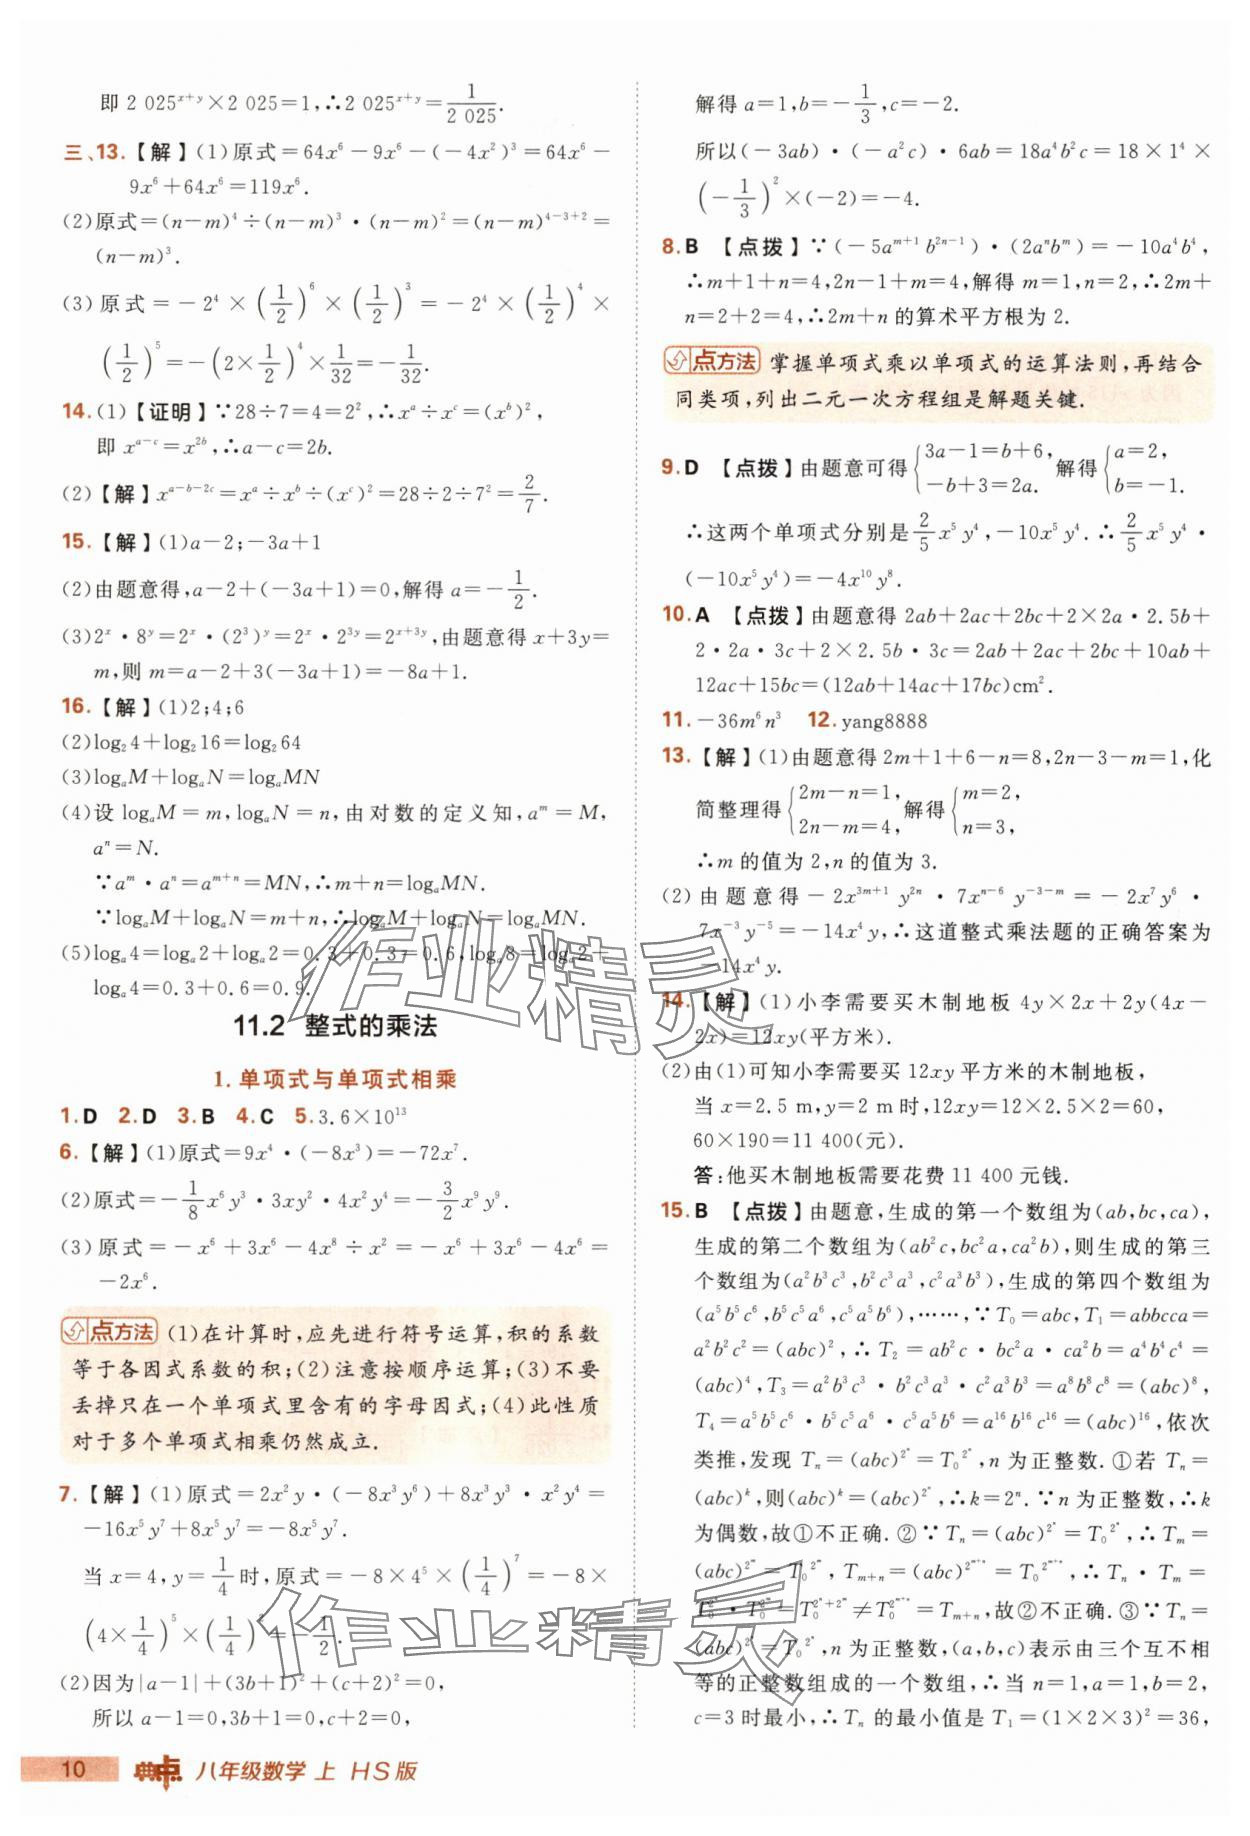 即 2 025^{x+y}×2 025=1,∴2 025^{x+y}=\frac{1}{2 025}.
三、13.【解】(1)原式=64x⁶-9x⁶-(-4x²)³=64x⁶-
9x⁶+64x⁶=119x⁶.
(2)原式=(n-m)⁴÷(n-m)³·(n-m)²=(n-m)^{4-3+2}=
(n-m)³.
(3)原式=-2⁴×(\frac{1}{2})⁶×(\frac{1}{2})³=-2⁴×(\frac{1}{2})⁴×
(\frac{1}{2})⁵=-(2×\frac{1}{2})⁴×\frac{1}{32}=-\frac{1}{32}.
14.(1)【证明】∵28÷7=4=2²,∴x^a÷x^c=(x^b)²,
即 x^{a-c}=x^{2b},∴a-c=2b.
(2)【解】x^{a-b-2c}=x^a÷x^b÷(x^c)²=28÷2÷7²=\frac{2}{7}.
15.【解】(1)a-2;-3a+1
(2)由题意得,a-2+(-3a+1)=0,解得 a=-\frac{1}{2}.
(3)2^x·8^y=2^x·(2³)^y=2^x·2^{3y}=2^{x+3y},由题意得 x+3y=
m,则 m=a-2+3(-3a+1)=-8a+1.
16.【解】(1)2;4;6
(2)log₂4+log₂16=log₂64
(3)log_aM+log_aN=log_aMN
(4)设 log_aM=m,log_aN=n,由对数的定义知,a^m=M,
a^n=N.
∵a^m·a^n=a^{m+n}=MN,∴m+n=log_aMN.
∵log_aM+log_aN=m+n,∴log_aM+log_aN=log_aMN.
(5)log_a4=log_a2+log_a2=0.3+0.3=0.6,log_a8=log_a2+
log_a4=0.3+0.6=0.9.
11.2 整式的乘法
1.单项式与单项式相乘
1.D 2.D 3.B 4.C 5.3.6×10¹³
6.【解】(1)原式=9x⁴·(-8x³)=-72x⁷.
(2)原式=-\frac{1}{8}x⁶y³·3xy²·4x²y⁴=-\frac{3}{2}x⁹y⁹.
(3)原式=-x⁶+3x⁶-4x⁸÷x²=-x⁶+3x⁶-4x⁶=
-2x⁶.
点方法 (1)在计算时,应先进行符号运算,积的系数
等于各因式系数的积;(2)注意按顺序运算;(3)不要
丢掉只在一个单项式里含有的字母因式;(4)此性质
对于多个单项式相乘仍然成立.
7.【解】(1)原式=2x²y·(-8x³y⁶)+8x³y³·x²y⁴=
-16x⁵y⁷+8x⁵y⁷=-8x⁵y⁷.
当 x=4,y=\frac{1}{4}时,原式=-8×4⁵×(\frac{1}{4})⁷=-8×
(4×\frac{1}{4})⁵×(\frac{1}{4})²=-\frac{1}{2}.
(2)因为|a-1|+(3b+1)²+(c+2)²=0,
所以 a-1=0,3b+1=0,c+2=0,
解得 a=1,b=-\frac{1}{3},c=-2.
所以(-3ab)·(-a²c)·6ab=18a⁴b²c=18×1⁴×
(-\frac{1}{3})²×(-2)=-4.
8.B 【点拨】∵(-5a^{m+1}b^{2n-1})·(2a^nb^m)=-10a⁴b⁴,
∴m+1+n=4,2n-1+m=4,解得 m=1,n=2,∴2m+
n=2+2=4,∴2m+n 的算术平方根为 2.
点方法 掌握单项式乘以单项式的运算法则,再结合
同类项,列出二元一次方程组是解题关键.
9.D 【点拨】由题意可得{3a-1=b+6, -b+3=2a. 解得{a=2, b=-1.
∴这两个单项式分别是\frac{2}{5}x⁵y⁴,-10x⁵y⁴.∴\frac{2}{5}x⁵y⁴·
(-10x⁵y⁴)=-4x¹⁰y⁸.
10.A 【点拨】由题意得 2ab+2ac+2bc+2×2a·2.5b+
2·2a·3c+2×2.5b·3c=2ab+2ac+2bc+10ab+
12ac+15bc=(12ab+14ac+17bc)cm².
11.-36m⁶n³ 12.yang8888
13.【解】(1)由题意得 2m+1+6-n=8,2n-3-m=1,化
简整理得{2m-n=1, 2n-m=4, 解得{m=2, n=3,
∴m 的值为 2,n 的值为 3.
(2)由题意得-2x^{3m+1}y^{2n}·7x^{n-6}y^{-3-m}=-2x⁷y⁶·
7x⁻³y⁻⁵=-14x⁴y,∴这道整式乘法题的正确答案为
-14x⁴y.
14.【解】(1)小李需要买木制地板 4y×2x+2y(4x-
2x)=12xy(平方米).
(2)由(1)可知小李需要买 12xy 平方米的木制地板,
当 x=2.5 m,y=2 m 时,12xy=12×2.5×2=60,
60×190=11 400(元).
答:他买木制地板需要花费 11 400 元钱.
15.B 【点拨】由题意,生成的第一个数组为(ab,bc,ca),
生成的第二个数组为(ab²c,bc²a,ca²b),则生成的第三
个数组为(a²b³c³,b²c³a³,c²a³b³),生成的第四个数组为
(a⁵b⁵c⁶,b⁵c⁵a⁶,c⁵a⁵b⁶),……,∵T₀=abc,T₁=abbcca=
a²b²c²=(abc)²,∴T₂=ab²c·bc²a·ca²b=a⁴b⁴c⁴=
(abc)⁴,T₃=a²b³c³·b²c³a³·c²a³b³=a⁸b⁸c⁸=(abc)⁸,
T₄=a⁵b⁵c⁶·b⁵c⁵a⁶·c⁵a⁵b⁶=a¹⁶b¹⁶c¹⁶=(abc)¹⁶,依次
类推,发现 T_n=(abc)^{2^n}=T₀^{2^n},n 为正整数.①若 T_n=
(abc)^k,则(abc)^k=(abc)^{2^n},∴k=2^n.∵n 为正整数,∴k
为偶数,故①不正确.②∵T_n=(abc)^{2^n}=T₀^{2^n},∴T_m=
(abc)^{2^m}=T₀^{2^m},T_{m+n}=(abc)^{2^{m+n}}=T₀^{2^{m+n}},∴T_n·T_m=
T₀^{2^n}·T₀^{2^m}=T₀^{2^n+2^m}≠T₀^{2^{m+n}}=T_{m+n},故②不正确.③∵T_n=
(abc)^{2^n}=T₀^{2^n},n 为正整数,(a,b,c)表示由三个互不相
等的正整数组成的一个数组,∴当 n=1,a=1,b=2,
c=3 时最小,∴T_n 的最小值是 T₁=(1×2×3)²=36,
作业精灵
作业精灵
10 典中点 八年级数学 上 HS版